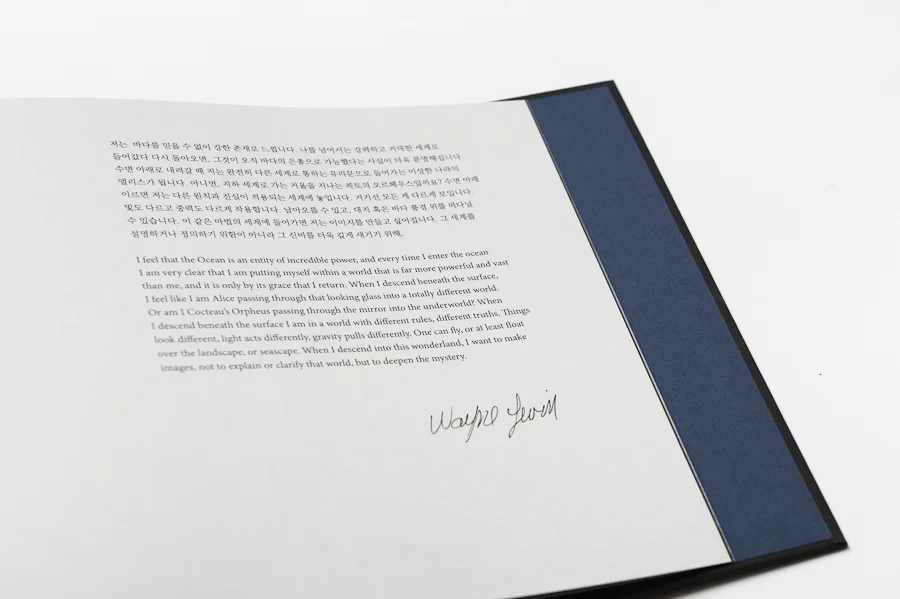 저는 바다를 믿을 수 없이 강한 존재로 느낍니다. 나를 넘어서는 강력하고 거대한 세계로
들어갔다 다시 돌아오면, 그것이 오직 바다의 은총으로 가능했다는 사실이 더욱 분명해집니다.
수면 아래로 내려갈 때 저는 완전히 다른 세계로 통하는 유리문으로 들어가는 이상한 나라의
앨리스가 됩니다. 아니면, 지하 세계로 가는 거울을 지나는 콕토의 오르페우스일까요? 수면 아래
이르면 저는 다른 원칙과 진실이 적용되는 세계에 놓입니다. 거기선 모든 게 다르게 보입니다.
빛도 다르고 중력도 다르게 작용합니다. 날아오를 수 있고, 대지 혹은 바다 풍경 위를 떠다닐
수 있습니다. 이 같은 마법의 세계에 들어가면 저는 이미지를 만들고 싶어집니다. 그 세계를
설명하거나 정의하기 위함이 아니라 그 신비를 더욱 깊게 새기기 위해.
I feel that the Ocean is an entity of incredible power, and every time I enter the ocean
I am very clear that I am putting myself within a world that is far more powerful and vast
than me, and it is only by its grace that I return. When I descend beneath the surface,
I feel like I am Alice passing through that looking glass into a totally different world.
Or am I Cocteau's Orpheus passing through the mirror into the underworld? When
I descend beneath the surface I am in a world with different rules, different truths. Things
look different, light acts differently, gravity pulls differently. One can fly, or at least float
over the landscape, or seascape. When I descend into this wonderland, I want to make
images, not to explain or clarify that world, but to deepen the mystery.
Wayne Levin